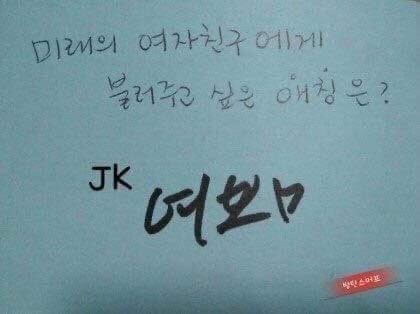 미래의 여자친구에게
불러주고 싶은 애칭은?
JK
여보ㅁ
방탄스어프